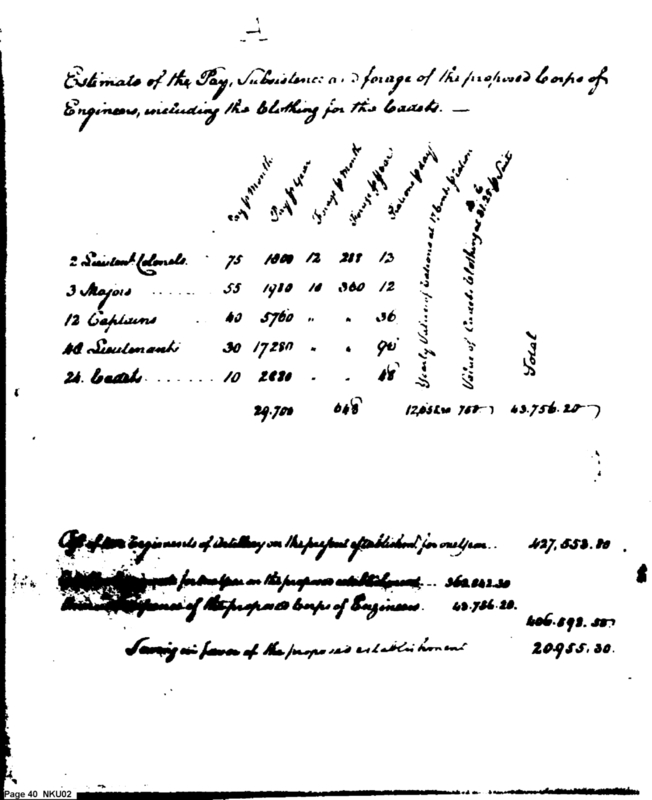 Estimate of the Pay, Subsistence and forage of the proposed Corps of
Engineers, including the Clothing for the Cadets. —
Pay p Month. Pay p Year Forage p Month Forage p Year Rations p day Yearly Value of Rations at 17 Cents p ration Value of Cadets Clothing at 31.25 p Suit Total
2 Lieutent Colonels. 75 1800 12 288 12
3 Majors ..... 55 1980 10 360 12
12 Captains 40 5760 " " 36
48 Lieutenants 30 17280 " " 96
24. Cadets ....... 10 2880 . . 48
29.700 648 768 43.756.20
Regiments of Artillery on the present established for one Year.. 427,553.80
for one Year on the proposed establishment... 362.842.30
of the proposed Corps of Engineers. 43.756.20.
406.598.50
Saving in favor of the proposed establishment 20955.30.
Page 40 NKU02